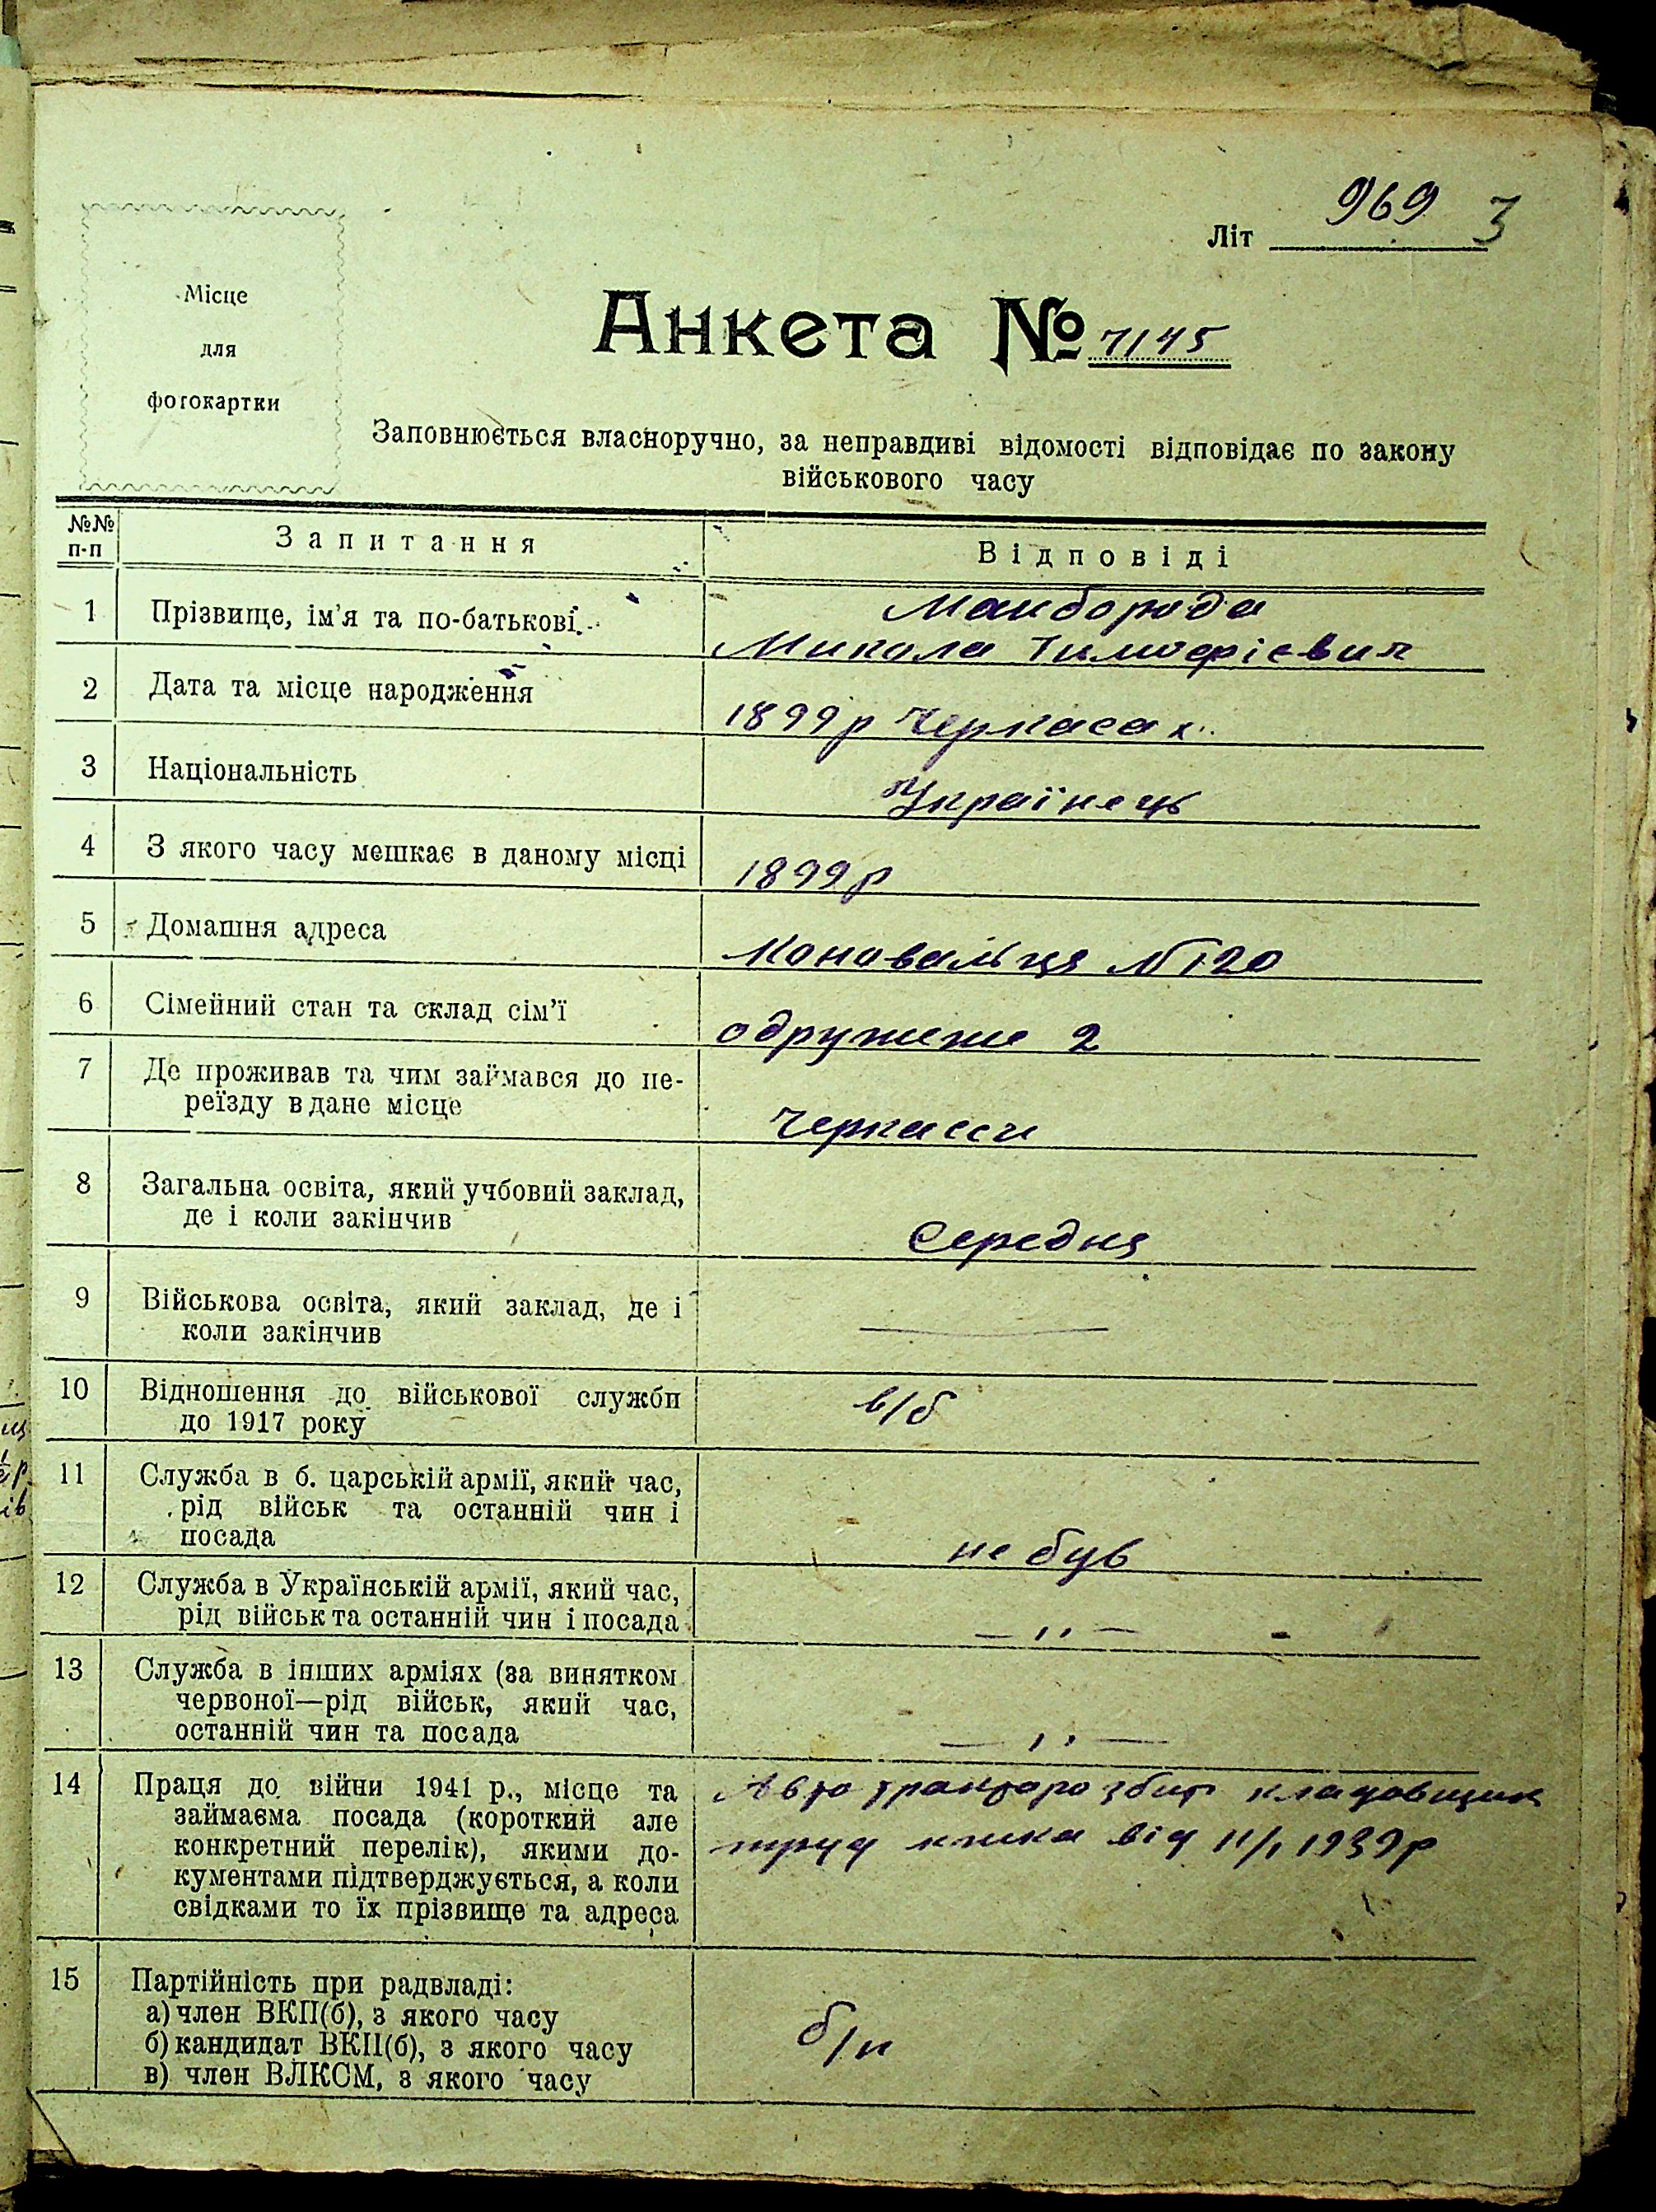 969 3
Літ
Місце
для
фотокартки
Анкета № 7145
Заповнюється власноручно, за неправдиві відомості відповідає по закону
військового часу
№№ п-п
Запитання
Відповіді
1
Прізвище, ім'я та по-батькові
Майборода
Микола Тимофієвич
2
Дата та місце народження
1899р Черкасах
3
Національність
Українець
4
З якого часу мешкає в даному місці
1899р
5
Домашня адреса
Коновальця № 120
6
Сімейний стан та склад сім'ї
одружене 2
7
Де проживав та чим займався до пе-
реїзду в дане місце
Черкасси
8
Загальна освіта, який учбовий заклад,
де і коли закінчив
Середня
9
Військова освіта, який заклад, де і
коли закінчив
—
10
Відношення до військової служби
до 1917 року
в/б
11
Служба в б. царській армії, який час,
рід військ та останній чин і
посада
не був
12
Служба в Українській армії, який час,
рід військ та останній чин і посада
— ,, —
13
Служба в інших арміях (за винятком
червоної—рід військ, який час,
останній чин та посада
— ,, —
14
Праця до війни 1941 р., місце та
займаєма посада (короткий але
конкретний перелік), якими до-
кументами підтверджується, а коли
свідками то їх прізвище та адреса
Авто тракторо збит кладовщик
труд книжка від 11/I 1939р
15
Партійність при радвладі:
а) член ВКП(б), з якого часу
б) кандидат ВКП(б), з якого часу
в) член ВЛКСМ, з якого часу
б/п